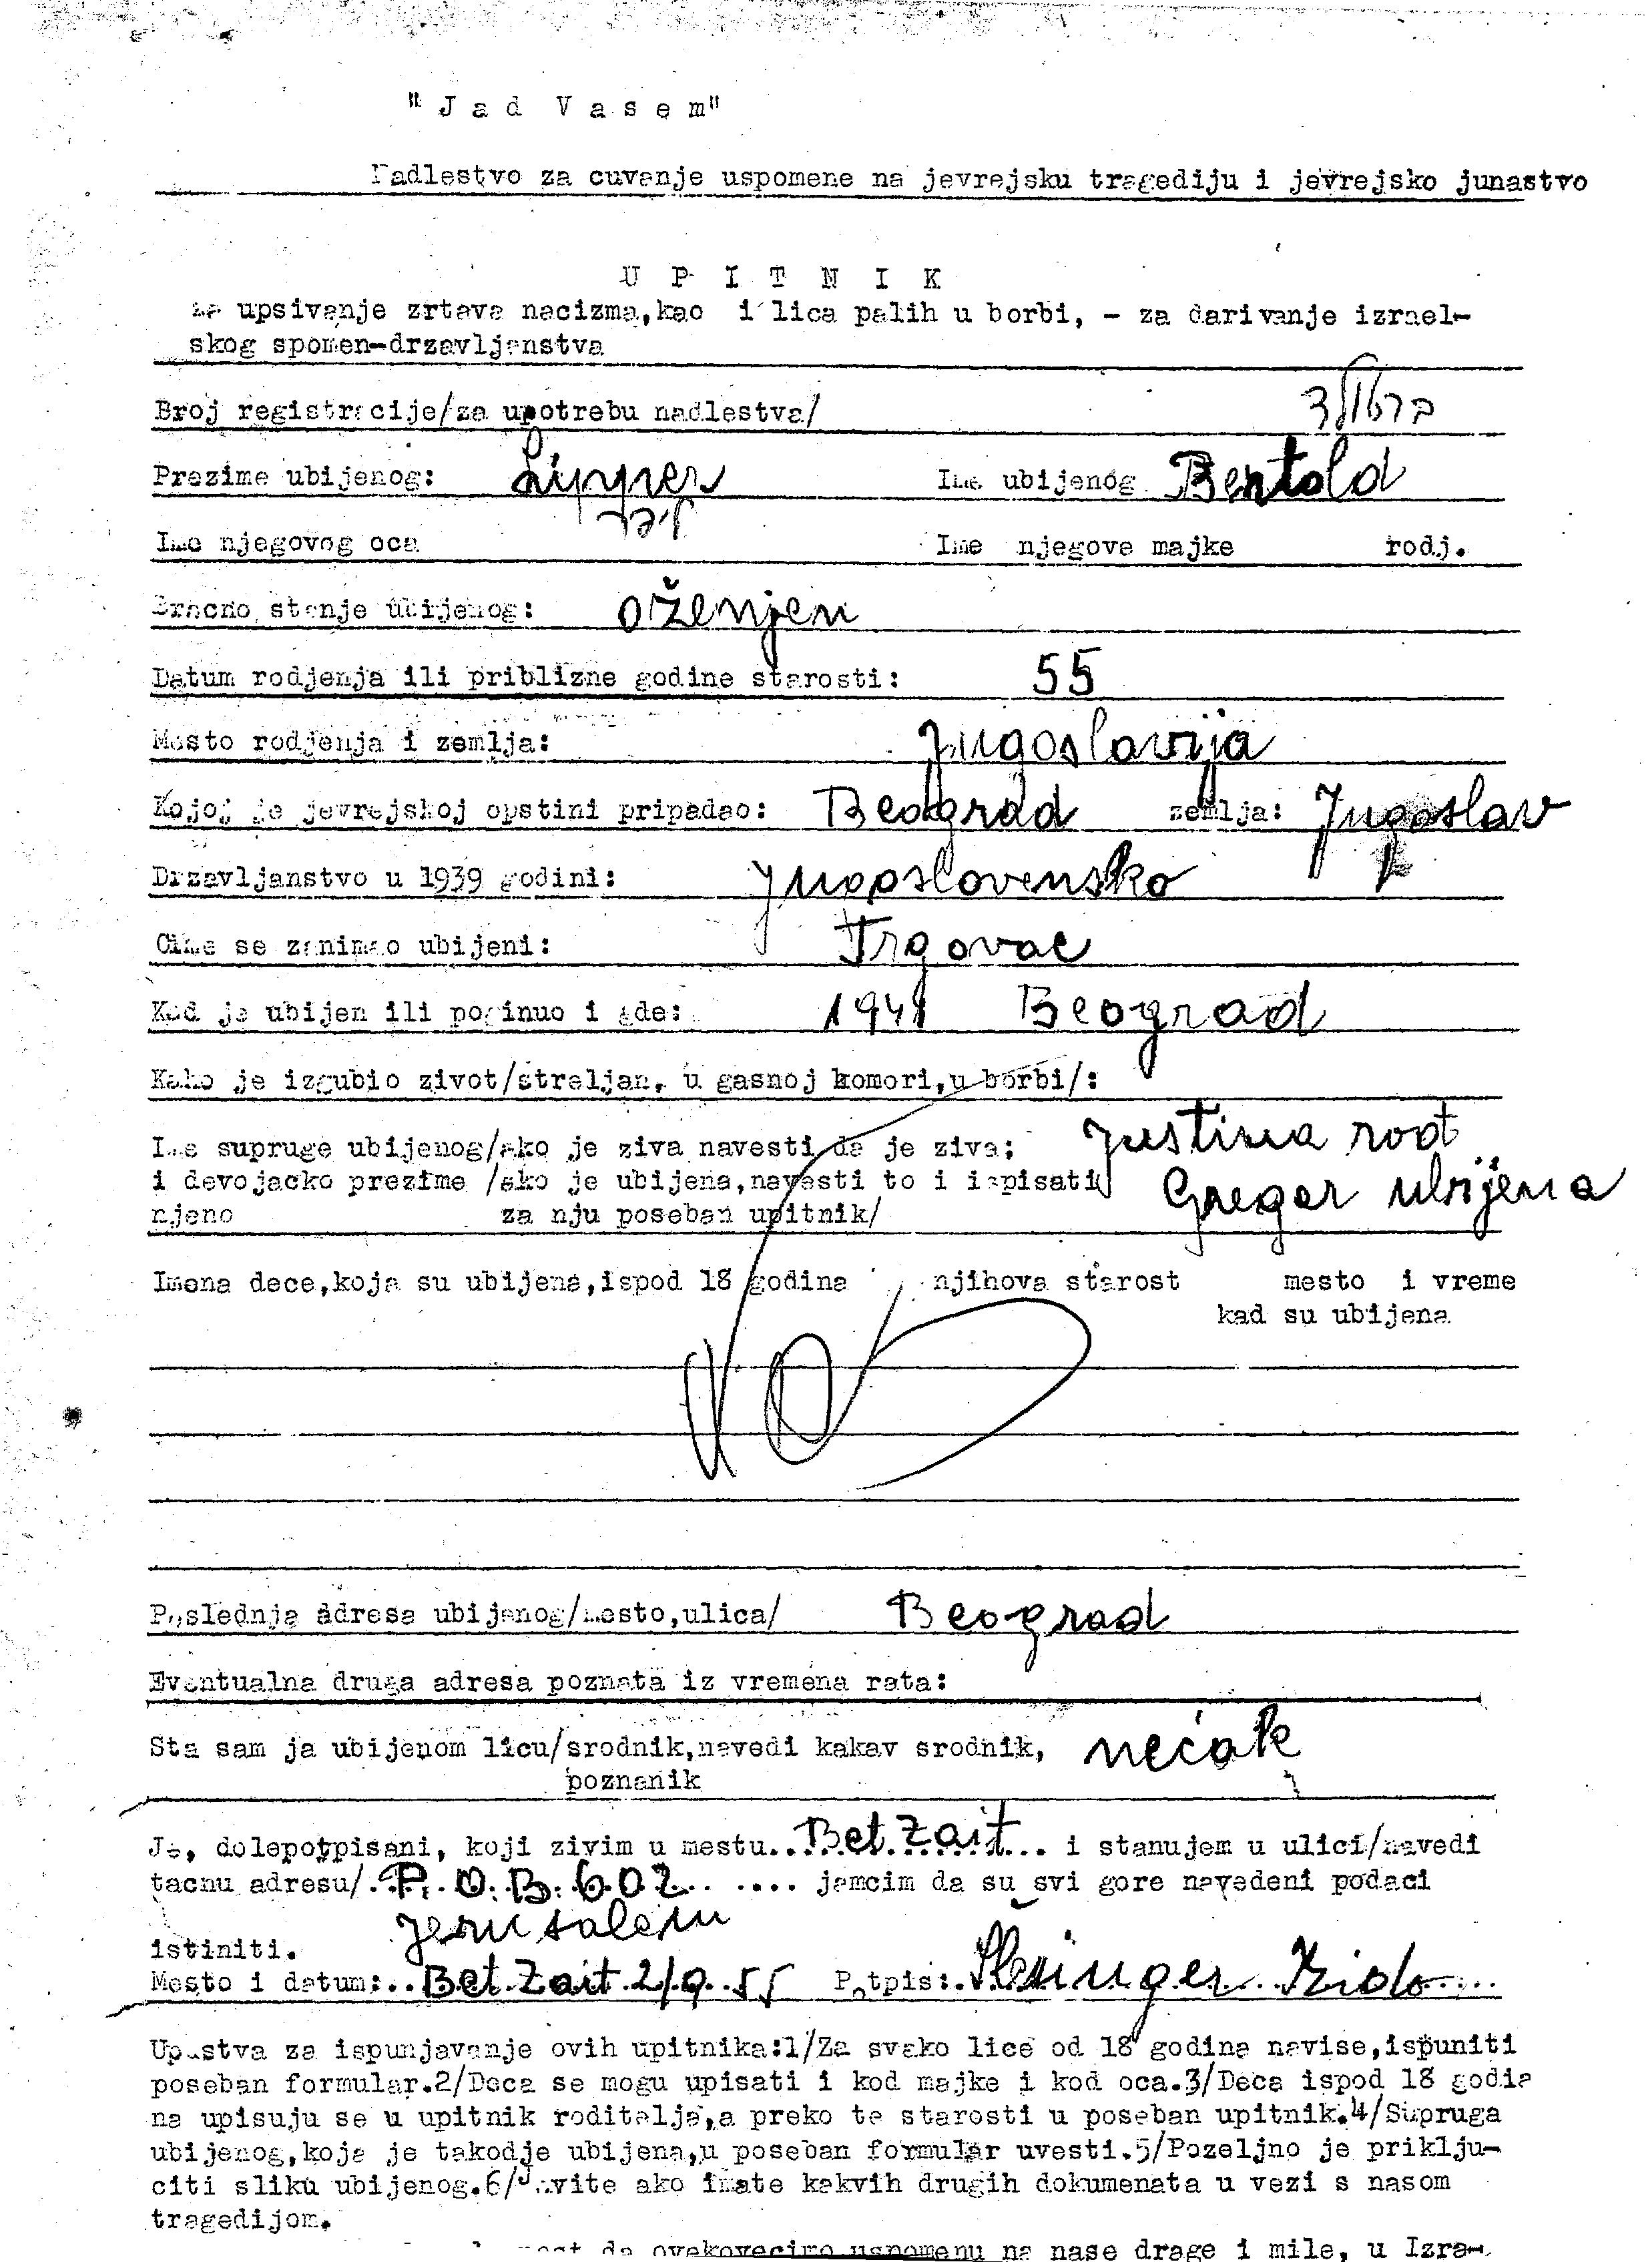 "Jad Vasem"
Nadlestvo za cuvanje uspomene na jevrejsku tragediju i jevrejsko junastvo
UPITNIK
za upsivanje zrtava nacizma,kao i lica palih u borbi, - za darivanje izrael-
skog spomen-drzavljanstva
Broj registracije/za upotrebu nadlestva/
Prezime ubijenog: Lipper Ime ubijenog Bertold
Ime njegovog oca Ime njegove majke rodj.
Bracno stanje ubijenog: oženjen
Datum rodjenja ili priblizne godine starosti: 55
Mesto rodjenja i zemlja: Jugoslavija
Kojoj je jevrejskoj opstini pripadao: Beograd zemlja: Jugoslav
Drzavljanstvo u 1939 godini: Jugoslovensko
Cime se zanimao ubijeni: Trgovac
Kad je ubijen ili poginuo i gde: 1941 Beograd
Kako je izgubio zivot/streljan, u gasnoj komori,u borbi/:
Ime supruge ubijenog/ako je ziva navesti da je ziva; Justina rod
i devojacko prezime /ako je ubijena,navesti to i ispisati Greger ubijena
njeno za nju poseban upitnik/
Imena dece,koja su ubijena,ispod 18 godina njihova starost mesto i vreme
kad su ubijena
Poslednja adresa ubijenog/mesto,ulica/ Beograd
Eventualna druga adresa poznata iz vremena rata:
Sta sam ja ubijenom licu/srodnik,navedi kakav srodnik, nećak
poznanik
Ja, dolepotpisani, koji zivim u mestu..Bet Zait... i stanujem u ulici/navedi
tacnu adresu/.P.O.B. 602.. .... jamcim da su svi gore navedeni podaci
Jerusalem
istiniti.
Mesto i datum:..Bet Zait 2/9.55 Potpis:.Šlesinger Zido....
Upustva za ispunjavanje ovih upitnika:1/Za svako lice od 18 godina navise,ispuniti
poseban formular.2/Deca se mogu upisati i kod majke i kod oca.3/Deca ispod 18 godi
na upisuju se u upitnik roditelja,a preko te starosti u poseban upitnik.4/Supruga
ubijenog,koja je takodje ubijena,u poseban formular uvesti.5/Pozeljno je priklju-
citi sliku ubijenog.6/Javite ako imate kakvih drugih dokumenata u vezi s nasom
tragedijom.
da ovekovecimo uspomenu na nase drage i mile, u Izra-